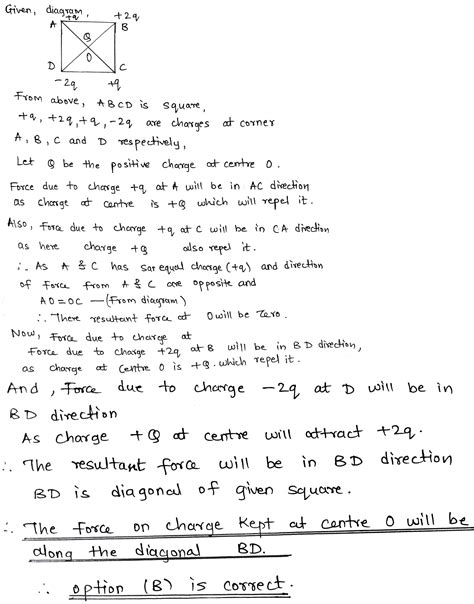 Given, diagram,
A +q +2q B
Q
O
D C
-2q +q
From above, ABCD is square,
+q, +2q, +q, -2q are charges at corner
A, B, C and D respectively,
Let Q be the positive charge at centre O.
Force due to charge +q at A will be in AC direction
as charge at centre is +Q which will repel it.
Also, Force due to charge +q at C will be in CA direction
as here charge +Q also repel it.
∴ As A & C has equal charge (+q) and direction
of force from A & C are opposite and
AO = OC — (From diagram)
∴ There resultant force at O will be Zero.
Now, Force due to charge at
Force due to charge +2q at B will be in BD direction,
as charge at centre O is +Q. which repel it.
And, Force due to charge -2q at D will be in
BD direction
As charge +Q at centre will attract +2q.
∴ The resultant force will be in BD direction
BD is diagonal of given square.
∴ The force on charge kept at centre O will be
along the diagonal BD.
∴ option (B) is correct.